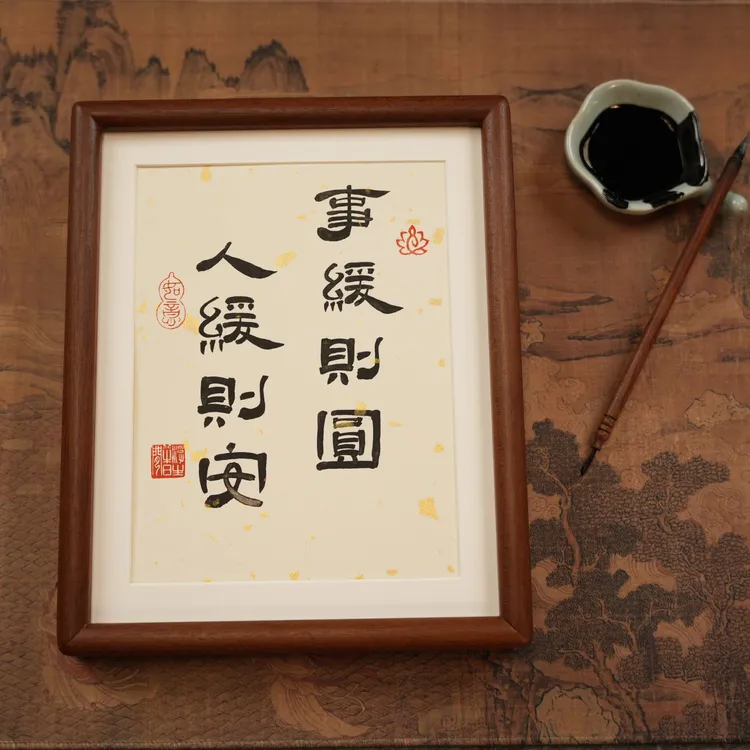 事緩則圓
人緩則安
如意